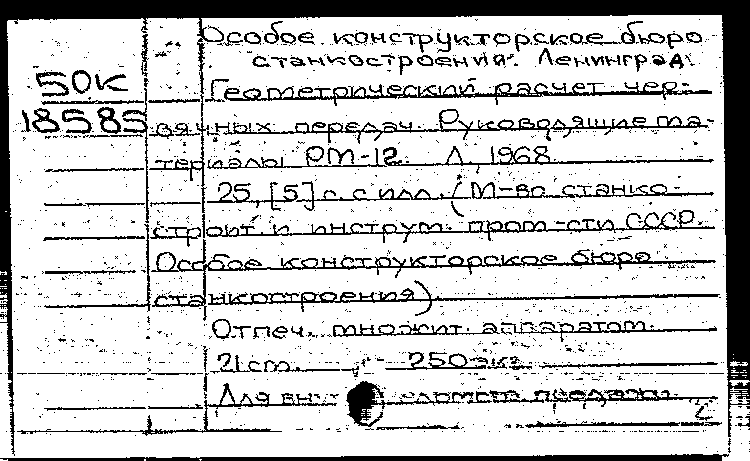 Особое конструкторское бюро
станкостроения. Ленинград.
50К
18585
Геометрический расчет чер-
вячных передач. Руководящие ма-
териалы РМ-12. Л., 1968.
25, [5] с. с илл. (М-во станко-
строит. и инструм. пром-сти СССР.
Особое конструкторское бюро
станкостроения).
Отпеч. множит. аппаратом.
21 cm. 250 экз.
Для